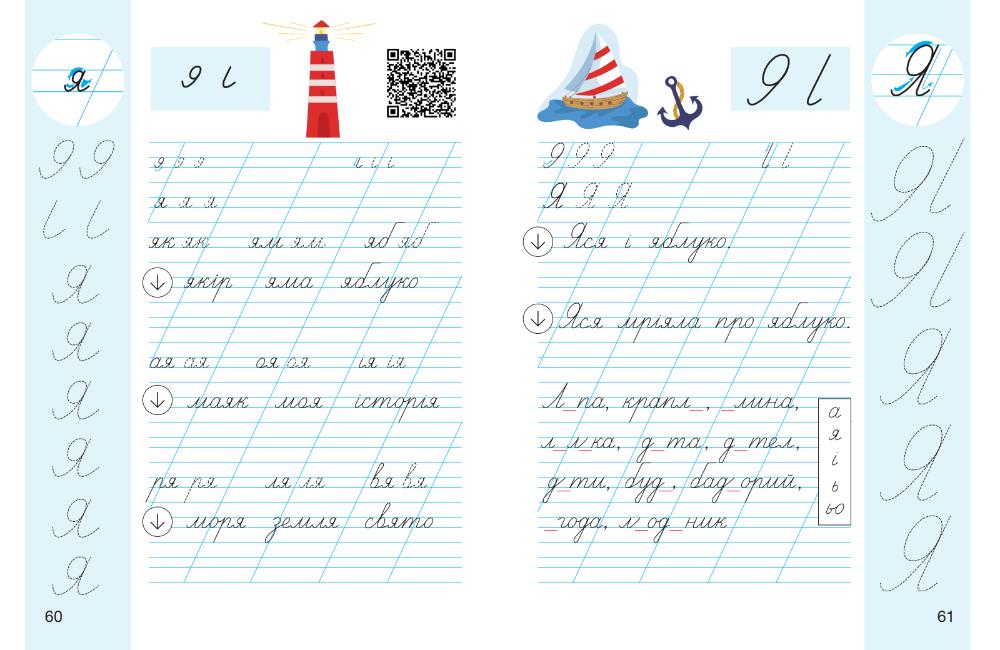 я
я я
як як ям ям яб яб
якір яма яблуко
ая ая оя оя ія ія
маяк моя історія
ря ря ля ля вя вя
моря земля свято
я
я
я
я
я
я
60
Я
Я Я Я
Яся і яблуко.
Яся мріяла про яблуко.
Л_па, крапл_, _лина,
л_л_ка, д_та, д_тел,
д_ти, буд_, бад_орий,
_года, л_од_ник
а
я
і
ь
ьо
Я
Я
Я
61